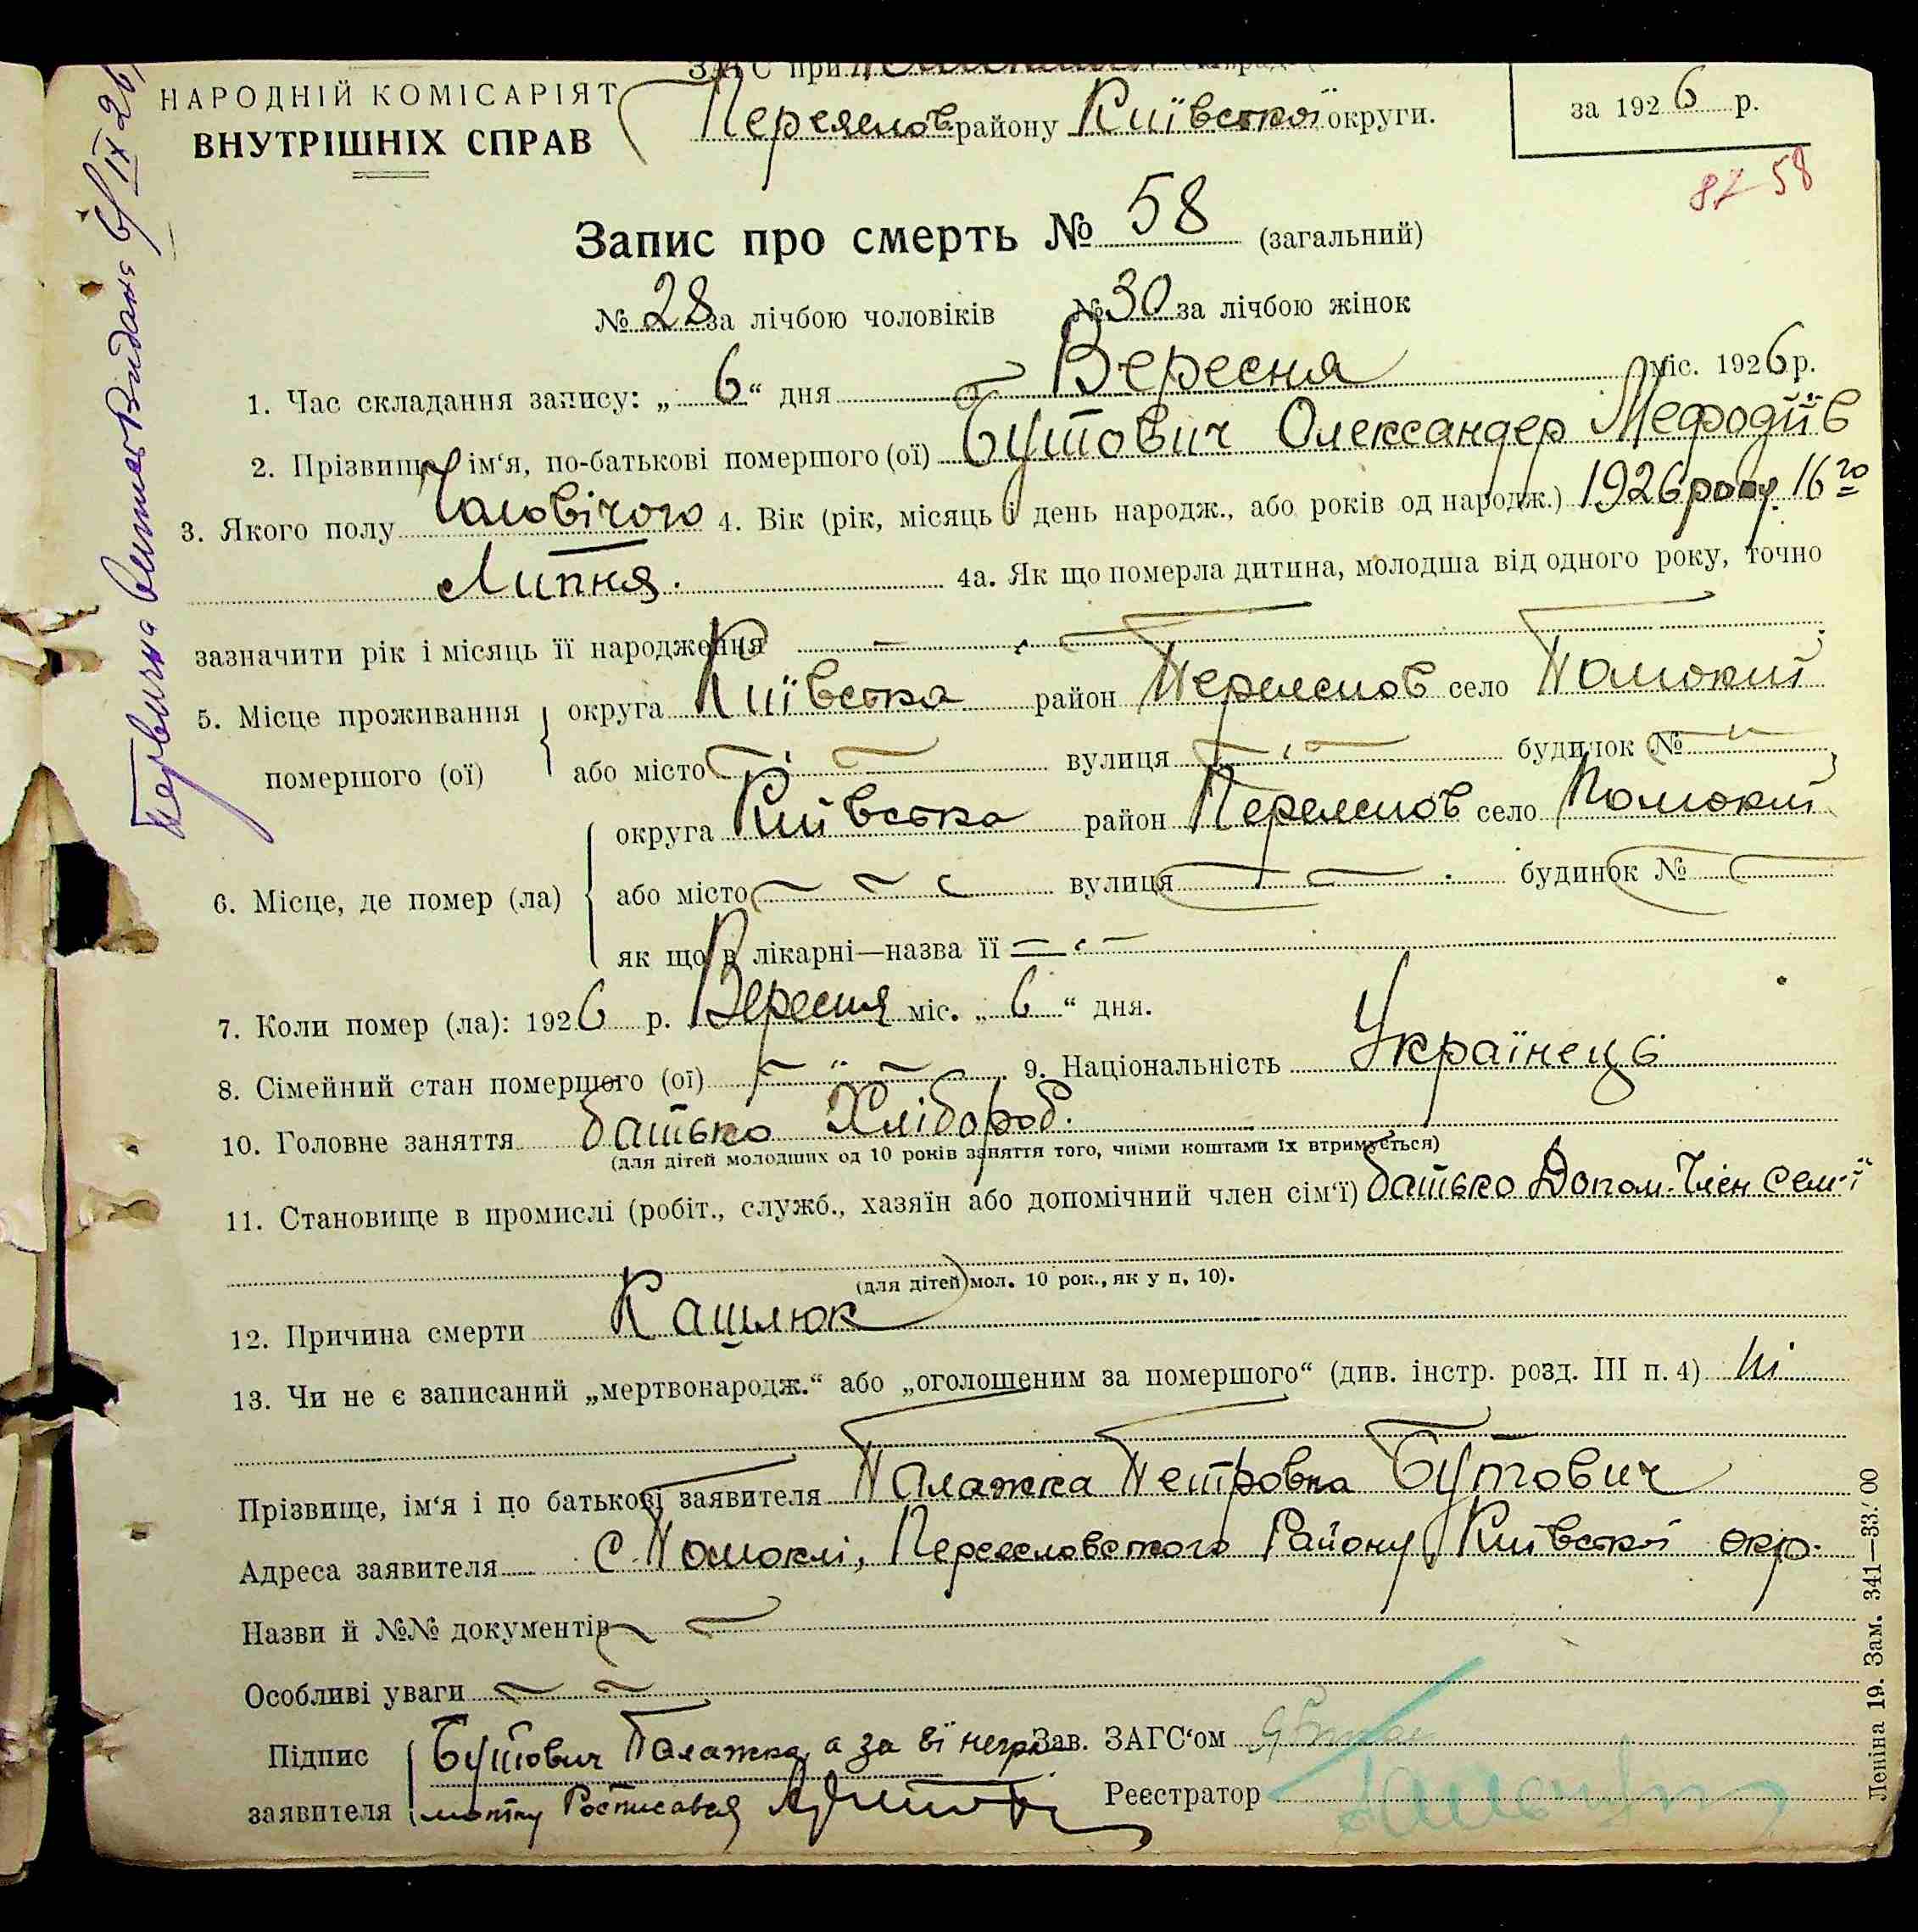 НАРОДНІЙ КОМІСАРІЯТ
ВНУТРІШНІХ СПРАВ
ЗАГС при
Переяслов району Київської округи.
за 1926 р.
87 58
Запис про смерть № 58 (загальний)
№ 28 за лічбою чоловіків № 30 за лічбою жінок
1. Час складання запису: „ 6 “ дня Вересня міс. 1926 р.
2. Прізвище, ім‘я, по-батькові помершого (ої) Бутович Олександер Мефодіїв
3. Якого полу Чоловічого 4. Вік (рік, місяць і день народж., або років од народж.) 1926 року 16го
Липня. 4а. Як що померла дитина, молодша від одного року, точно
зазначити рік і місяць її народження
5. Місце проживання помершого (ої) округа Київська район Переяслов село Помокли
або місто вулиця будинок №
6. Місце, де помер (ла) округа Київська район Переяслов село Помокли
або місто вулиця будинок №
як що в лікарні—назва її
7. Коли помер (ла): 1926 р. Вересня міс. „ 6 “ дня.
8. Сімейний стан помершого (ої) 9. Національність Українець
10. Головне заняття батько Хлібороб.
(для дітей молодших од 10 років заняття того, чиїми коштами їх втримується)
11. Становище в промислі (робіт., служб., хазяїн або допомічний член сім‘ї) батько Допом. Член сем‘ї
(для дітей мол. 10 рок., як у п. 10).
12. Причина смерти Кашлюк
13. Чи не є записаний „мертвонародж.“ або „оголошеним за помершого“ (див. інстр. розд. III п. 4) Ні
Прізвище, ім‘я і по батькові заявителя Палажка Петровна Бутович
Адреса заявителя С. Помоклі, Переясловського Району Київської окр.
Назви й №№ документів
Особливі уваги
Підпис заявителя Бутович Палажка, а за її негра-
мотну Росписався
Зав. ЗАГС‘ом
Реєстратор
Первична Виписка Видана 6/IX 26
Леніна 19. Зам. 341—33.000